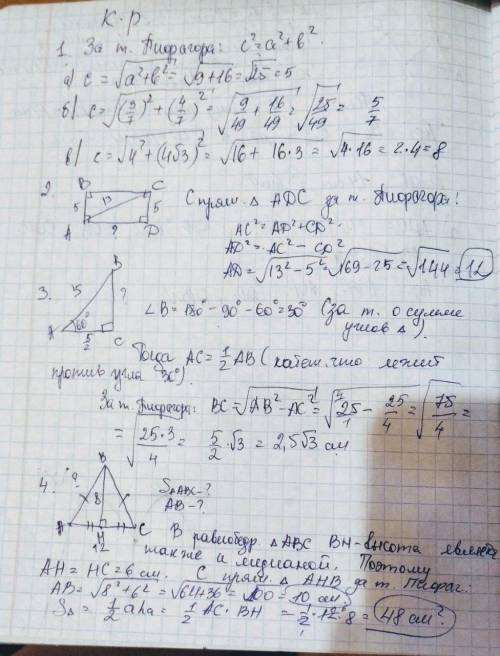 К.Р
1. За т. Пифагора: c²=a²+b².
а) c = √a²+b² = √9+16 = √25 = 5
б) c = √(3/7)²+(4/7)² = √9/49 + 16/49 = √25/49 = 5/7
в) c = √4²+(4√3)² = √16 + 16·3 = √4·16 = 2·4=8
2. B C
5 13 5
A ? D
С прям. △ ADC за т. Пифагора:
AC² = AD²+CD².
AD² = AC² − CD²
AD = √13²−5² = √169−25 = √144 = 12
3. B
5 ?
A 60° C
5/2
∠B = 180°−90°−60°=30° (за т. о сумме
углов △).
Тогда AC = 1/2 AB (катет, что лежит
против угла 30°).
За т. Пифагора: BC = √AB²−AC² = √25/1 − 25/4 = √75/4 =
= √25·3/4 = 5/2 · √3 = 2,5√3 см
4. B
? 8
A H C
12
S△ABC−?
AB−?
В равнобедр. △ABC BH−высота является
также и медианой. Поэтому
AH = HC = 6 см. С прям. △ AHB за т. Пифаг.:
AB = √8²+6² = √64+36 = √100 = 10 см.
S△ = 1/2 aha = 1/2 AC · BH = 1/2 · 12 · 8 = 48 см².